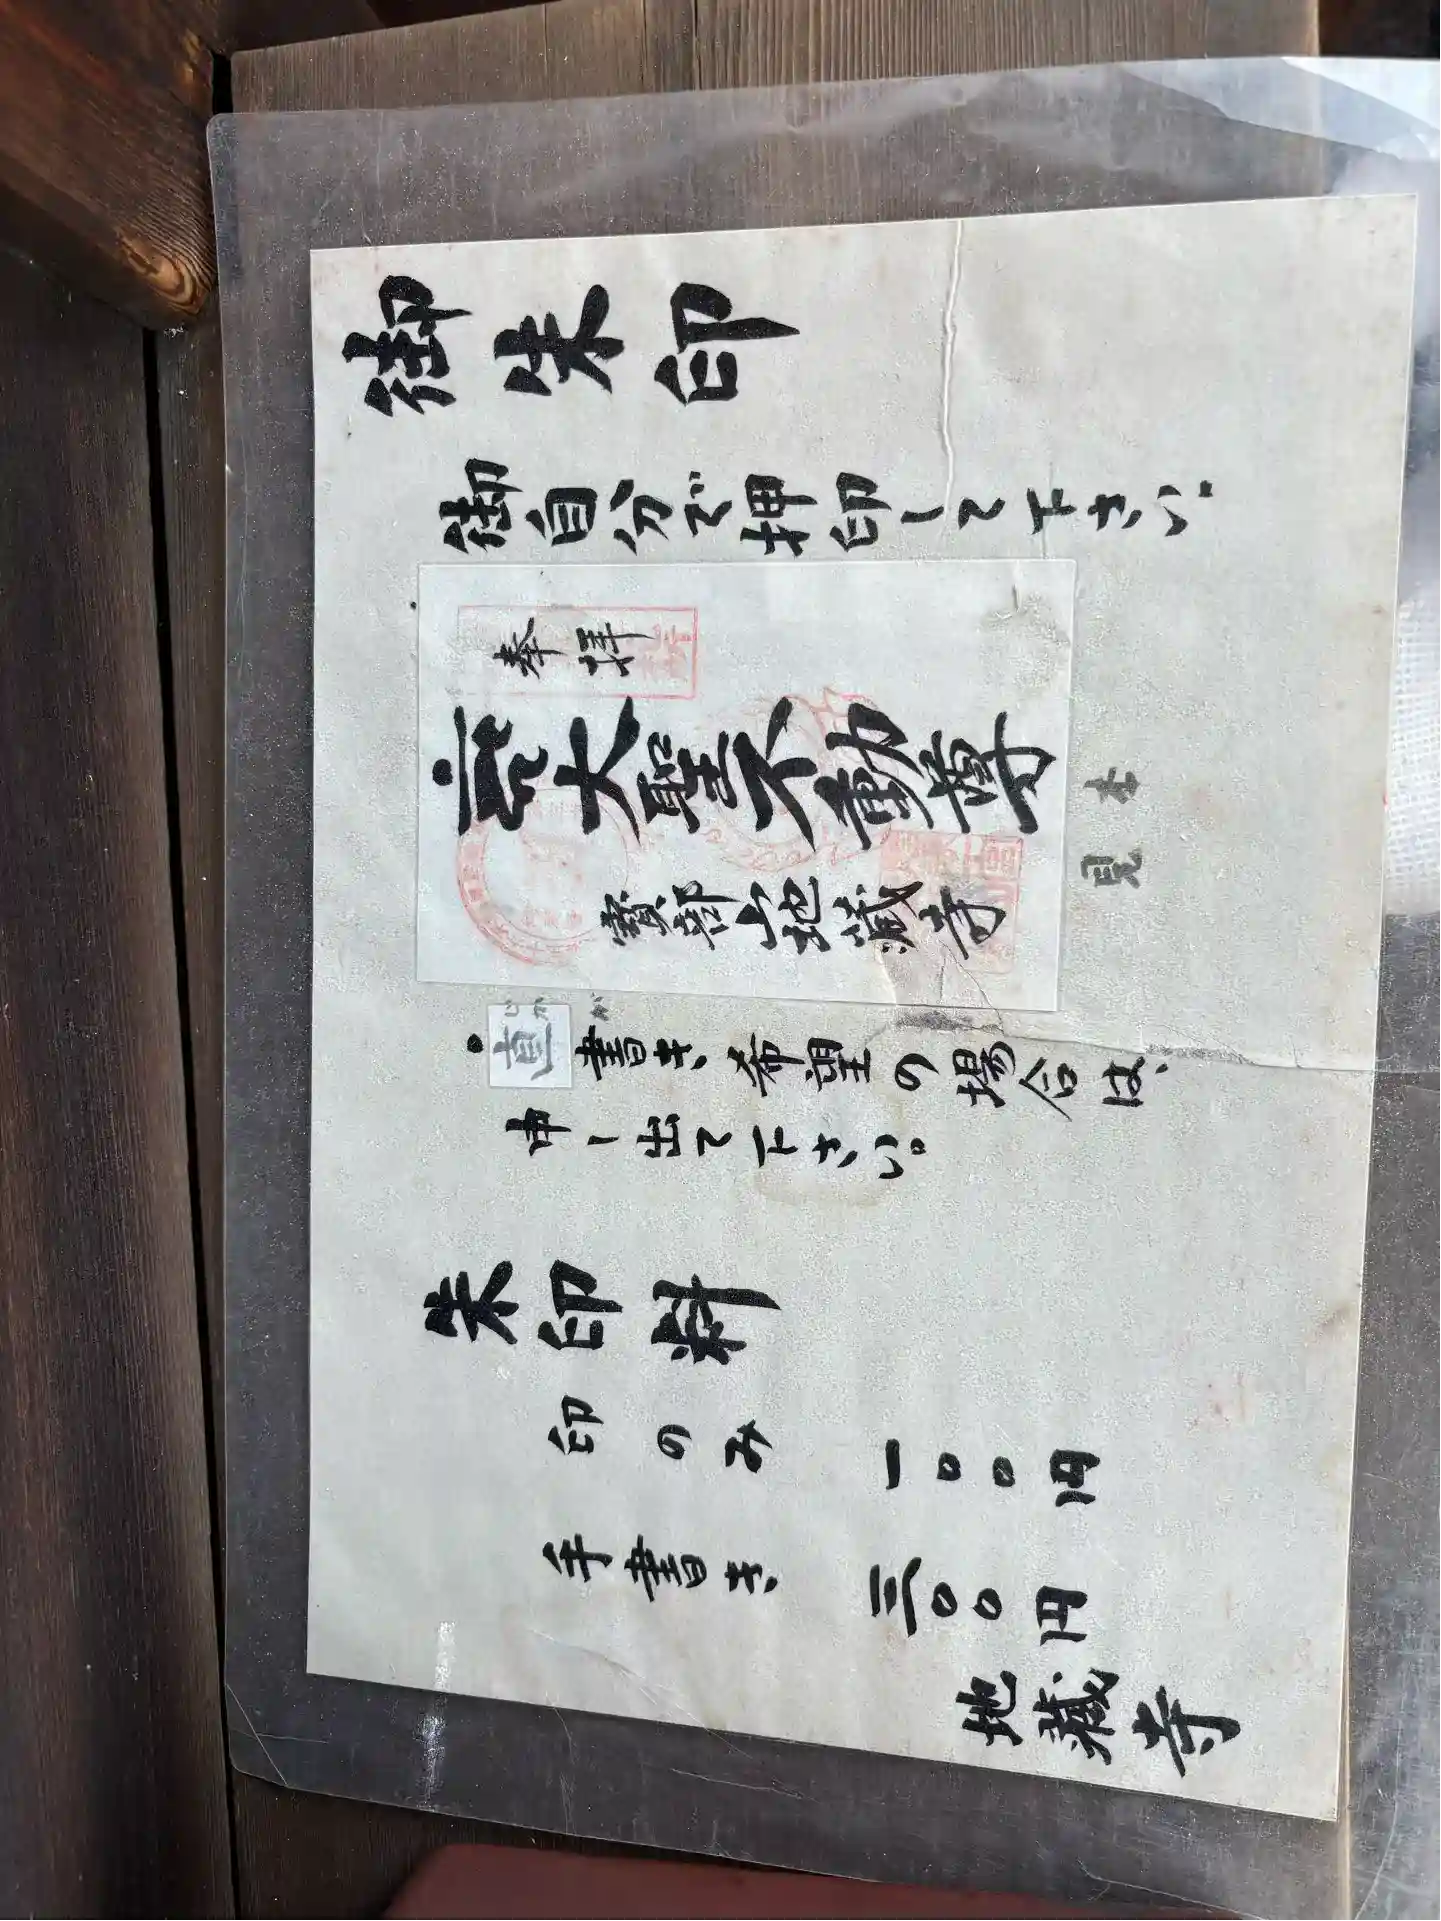 御朱印
御自分で押印して下さい。
奉拝
大聖不動尊
寳部山地蔵寺
見本
じか が
・直書き希望の場合は、
申し出て下さい。
朱印料
印のみ 一〇〇円
手書き 三〇〇円
地蔵寺